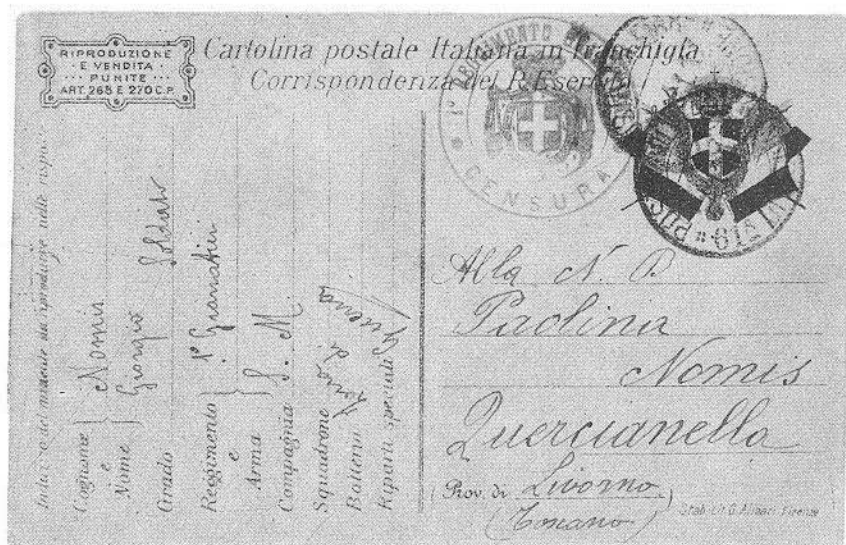 RIPRODUZIONE
E VENDITA
PUNITE
ART. 268 E 270 C.P.
Cartolina postale Italiana in franchigia
Corrispondenza del R. Esercito
1° REGGIMENTO
CENSURA
Indirizzo del mittente da riprodurre nelle
Cognome e Nome } Nomis Giorgio
Grado Soldato
Reggimento e Arma } 1° Granatieri
Compagnia S. M.
Squadrone Zona di Guerra
Batteria
Riparti speciali
Alla N. D.
Paolina
Nomis
Quercianella
(Prov. di Livorno)
(Toscana)
Stab. Lit. G. Alinari Firenze